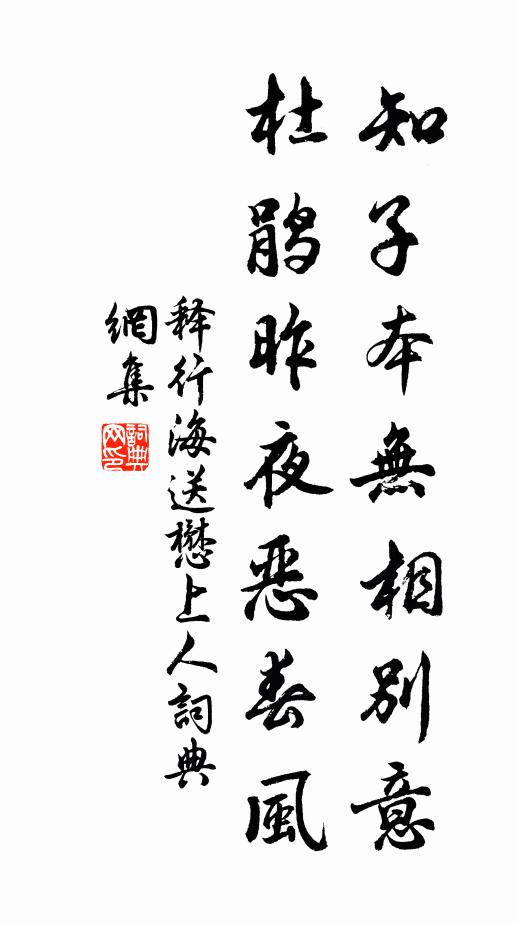 知子本無相別意
杜鹃昨夜恶春風
释行海送懋上人詞典
網集
詞典
网印